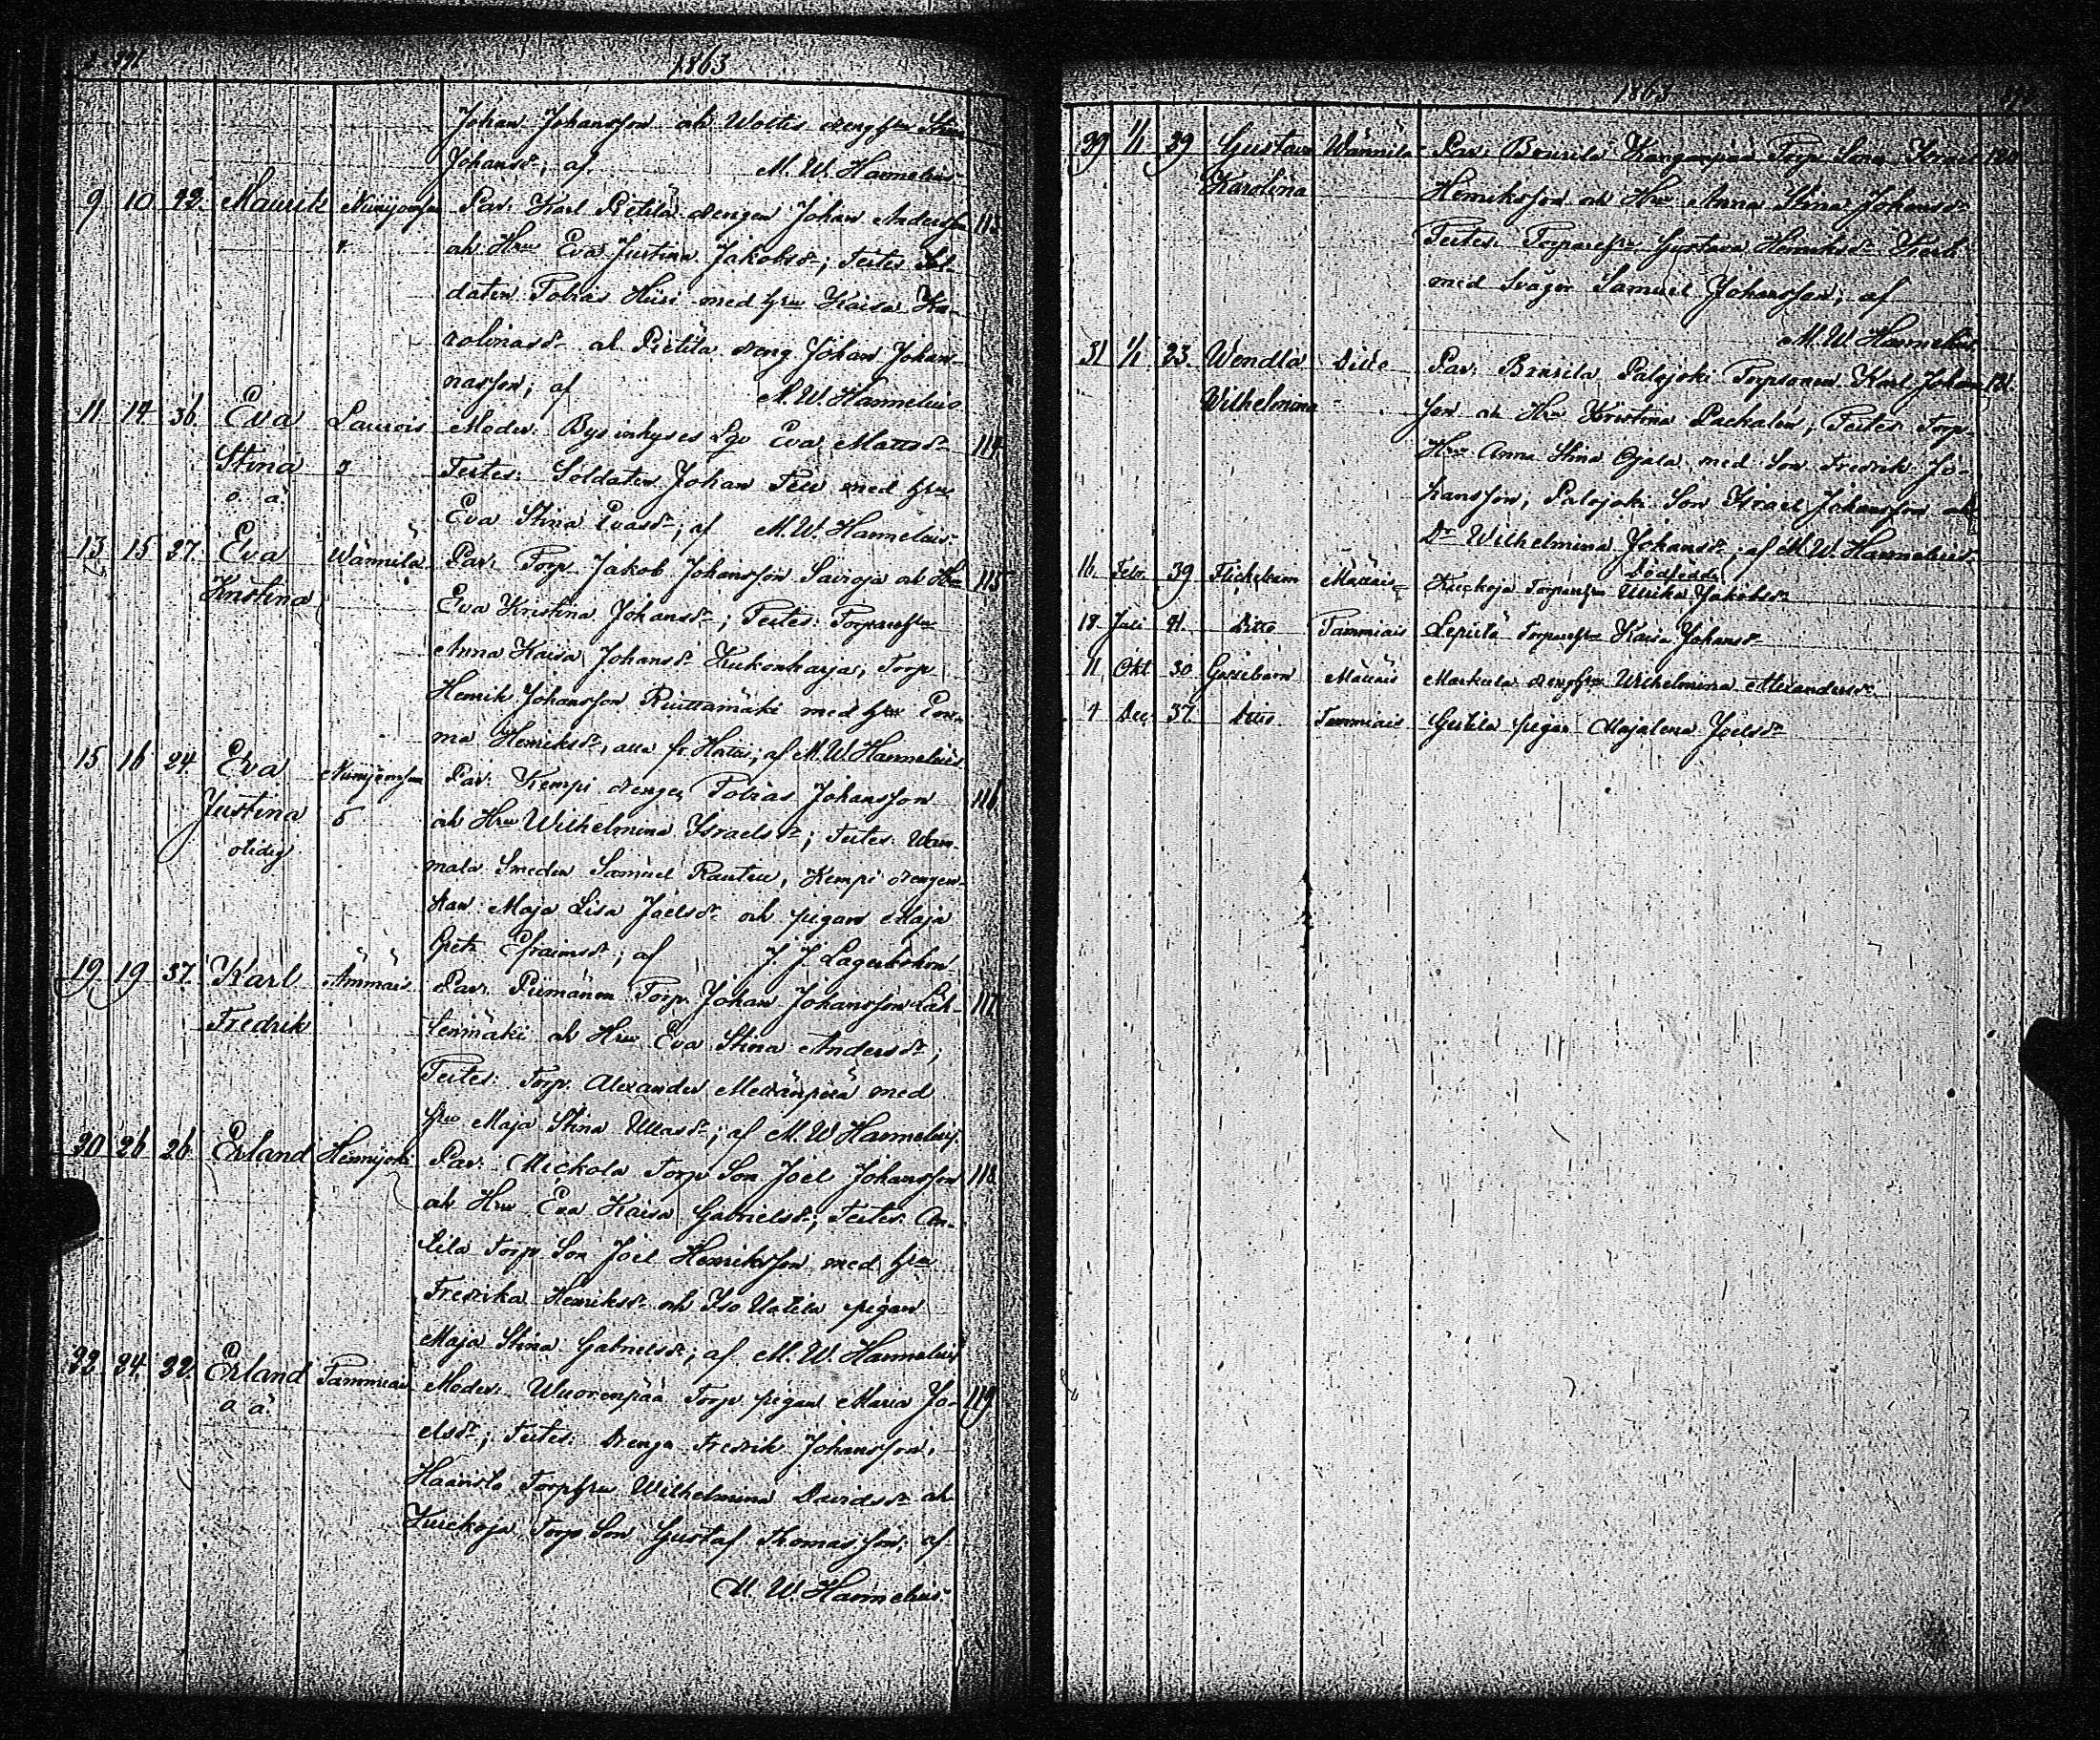 1863
Johan Johansson och Woitis drengh:u Stina
Johansdr; af M. W. Hannelius
9 10 22. Maurits Nunijensuu Par: Karl Pietilä drengen Johan Andersson 113
4. och H:u Eva Justina Jakobsdr; Testes: Sol-
daten Tobias Hiisi med h:u Kaisa Ka-
rolinasdr och Pietilä dreng Johan Johan-
nasson; af M. W. Hannelius
11 14 36. Eva Laurois Moder: Bys inhyses Eva Mattsdr 114.
Stina 3 Testes: Soldaten Johan Peu med h:u
o. ä. Eva Stina Evasdr; af M. W. Hannelius
13 15 27. Eva Wännilä Par: Torp. Jakob Johansson Savioja och H:u 115
Kristina Eva Kristina Johansdr; Testes: Torpareh:u
Anna Kaisa Johansdr Kukonharja, Torp
Henrik Johansson Riuttamäki med h:u Em-
ma Henriksdr, alla fr. Hattu; af M. W. Hannelius
15 16 24. Eva Nunijensuu Par: Kempi drengen Tobias Johansson 116
Justina 5 och H:u Wilhelmina Israelsdr; Testes: Wam-
otidig mala Smeden Samuel Rautell, Kempi drengen-
Maja Lisa Joelsdr och pigan Maja
Greta Efraimsdr; af J. J. Lagerbohm
19 19 37. Karl Ämmäis Par: Piimänen Torp. Johan Johansson Läh- 117.
Fredrik teenmäki och H:u Eva Stina Andersdr;
Testes: Torp. Alexander Metsänperä med
h:u Maja Stina Ullasdr; af M. W. Hannelius
20 26 26. Erland Hennijoki Par: Mickola Torp Son Joel Johansson 118.
och H:u Eva Kaisa Gabrielsdr; Testes: An-
tila Torp. Son Joel Henriksson med h:u
Fredrika Henriksdr och Iso Uotila pigan
Maja Stina Gabrielsdr; af M. W. Hannelius
22. 24. 22. Erland Tammiais Moder: Wuorenpää Torp. pigan Maria Jo- 119.
o. ä. elsdr; Testes: Drengen Fredrik Johansson,
Haanisto Torph:u Wilhelmina Davidsdr och
Kuckoja Torp Son Gustaf Thomasson; af
M. W. Hannelius
1863
29 1/1 29 Gustava Wännilä Par: Brusila Kanganpää Torp. Son Israel 120.
Karolina Henriksson och H:u Anna Stina Johansdr
Testes: Torpareh:u Gustava Henriksdr
med Svåger Samuel Johansson; af
M. W. Hannelius
31 1/1 23. Wendla Ditto Par: Brusila Palojoki Torparen Karl Johans- 121.
Wilhelmina son och H:u Kristina Packalén; Testes: Torp-
H:u Anna Stina Ojala med Son Fredrik Jo-
hansson, Palojoki Son Israel Johansson och
Dr Wilhelmina Johansdr; af M. W. Hannelius
Dödfödda
16. Febr. 39 Flickebarn Mattais Kuckoja Torpareh:u Ulrika Jakobsdr
18. Juli 41. Ditto Tammiais Lepistö Torpareh:u Kaisa Johansdr
11 Okt 30 Gossebarn Mattais Markula drengh:u Wilhelmina Alexandersdr
4 Dec. 37. Ditto Tammiais Gutila pigan Majalena Joelsdr